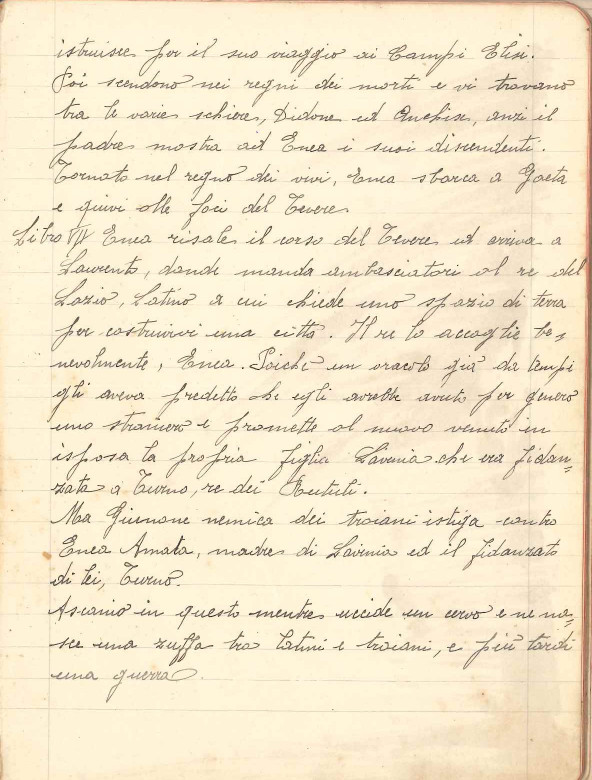 istruisce per il suo viaggio ai Campi Elisi.
Poi scendono nei regni dei morti e vi trovano
tra le varie schiere, Didone ed Anchise, anzi il
padre mostra ad Enea i suoi discendenti.
Tornato nel regno dei vivi, Enea sbarca a Gaeta
e quivi alle foci del Tevere
Libro VII Enea risale il corso del Tevere ed arriva a
Laurento, donde manda ambasciatori al re del
Lazio, Latino a cui chiede uno spazio di terra
per costruirvi una città. Il re lo accoglie be=
nevolmente, Enea. Poichè un oracolo già da tempi
gli aveva predetto che egli avrebbe avuto per genero
uno straniero e promette al nuovo venuto in
isposa la propria figlia Lavinia che era fidan=
zata a Turno, re dei Rutuli.
Ma Giunone nemica dei troiani istiga contro
Enea Amata, madre di Lavinia ed il fidanzato
di lei, Turno.
Ascanio in questo mentre uccide un cervo e ne na=
sce una zuffa tra latini e troiani, e più tardi
una guerra.